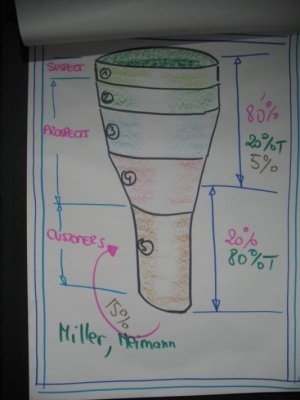 SUSPECT
1
2
PROSPECTS
3
4
CUSTOMERS
5
15%
80%
20%T
5%
20%
80%T
Miller, Heimann